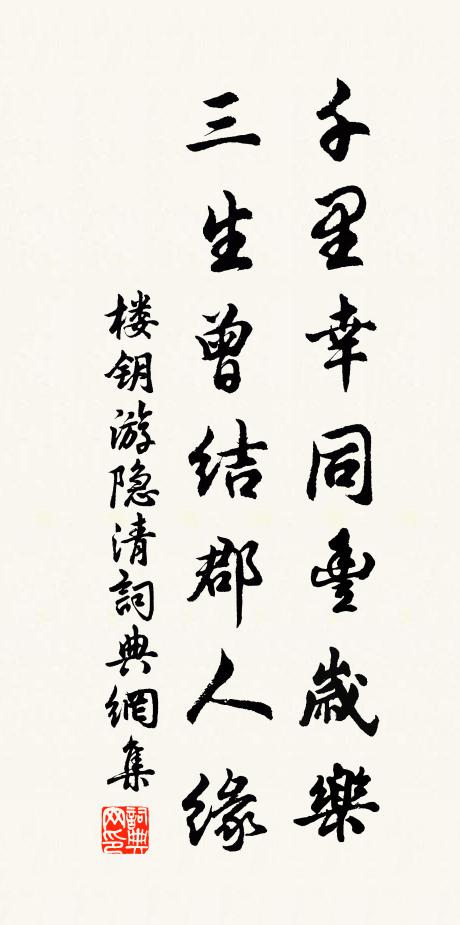 千里幸同豐歲樂
三生曾結郡人緣
楼钥游隐清詞典網集
詞典网印